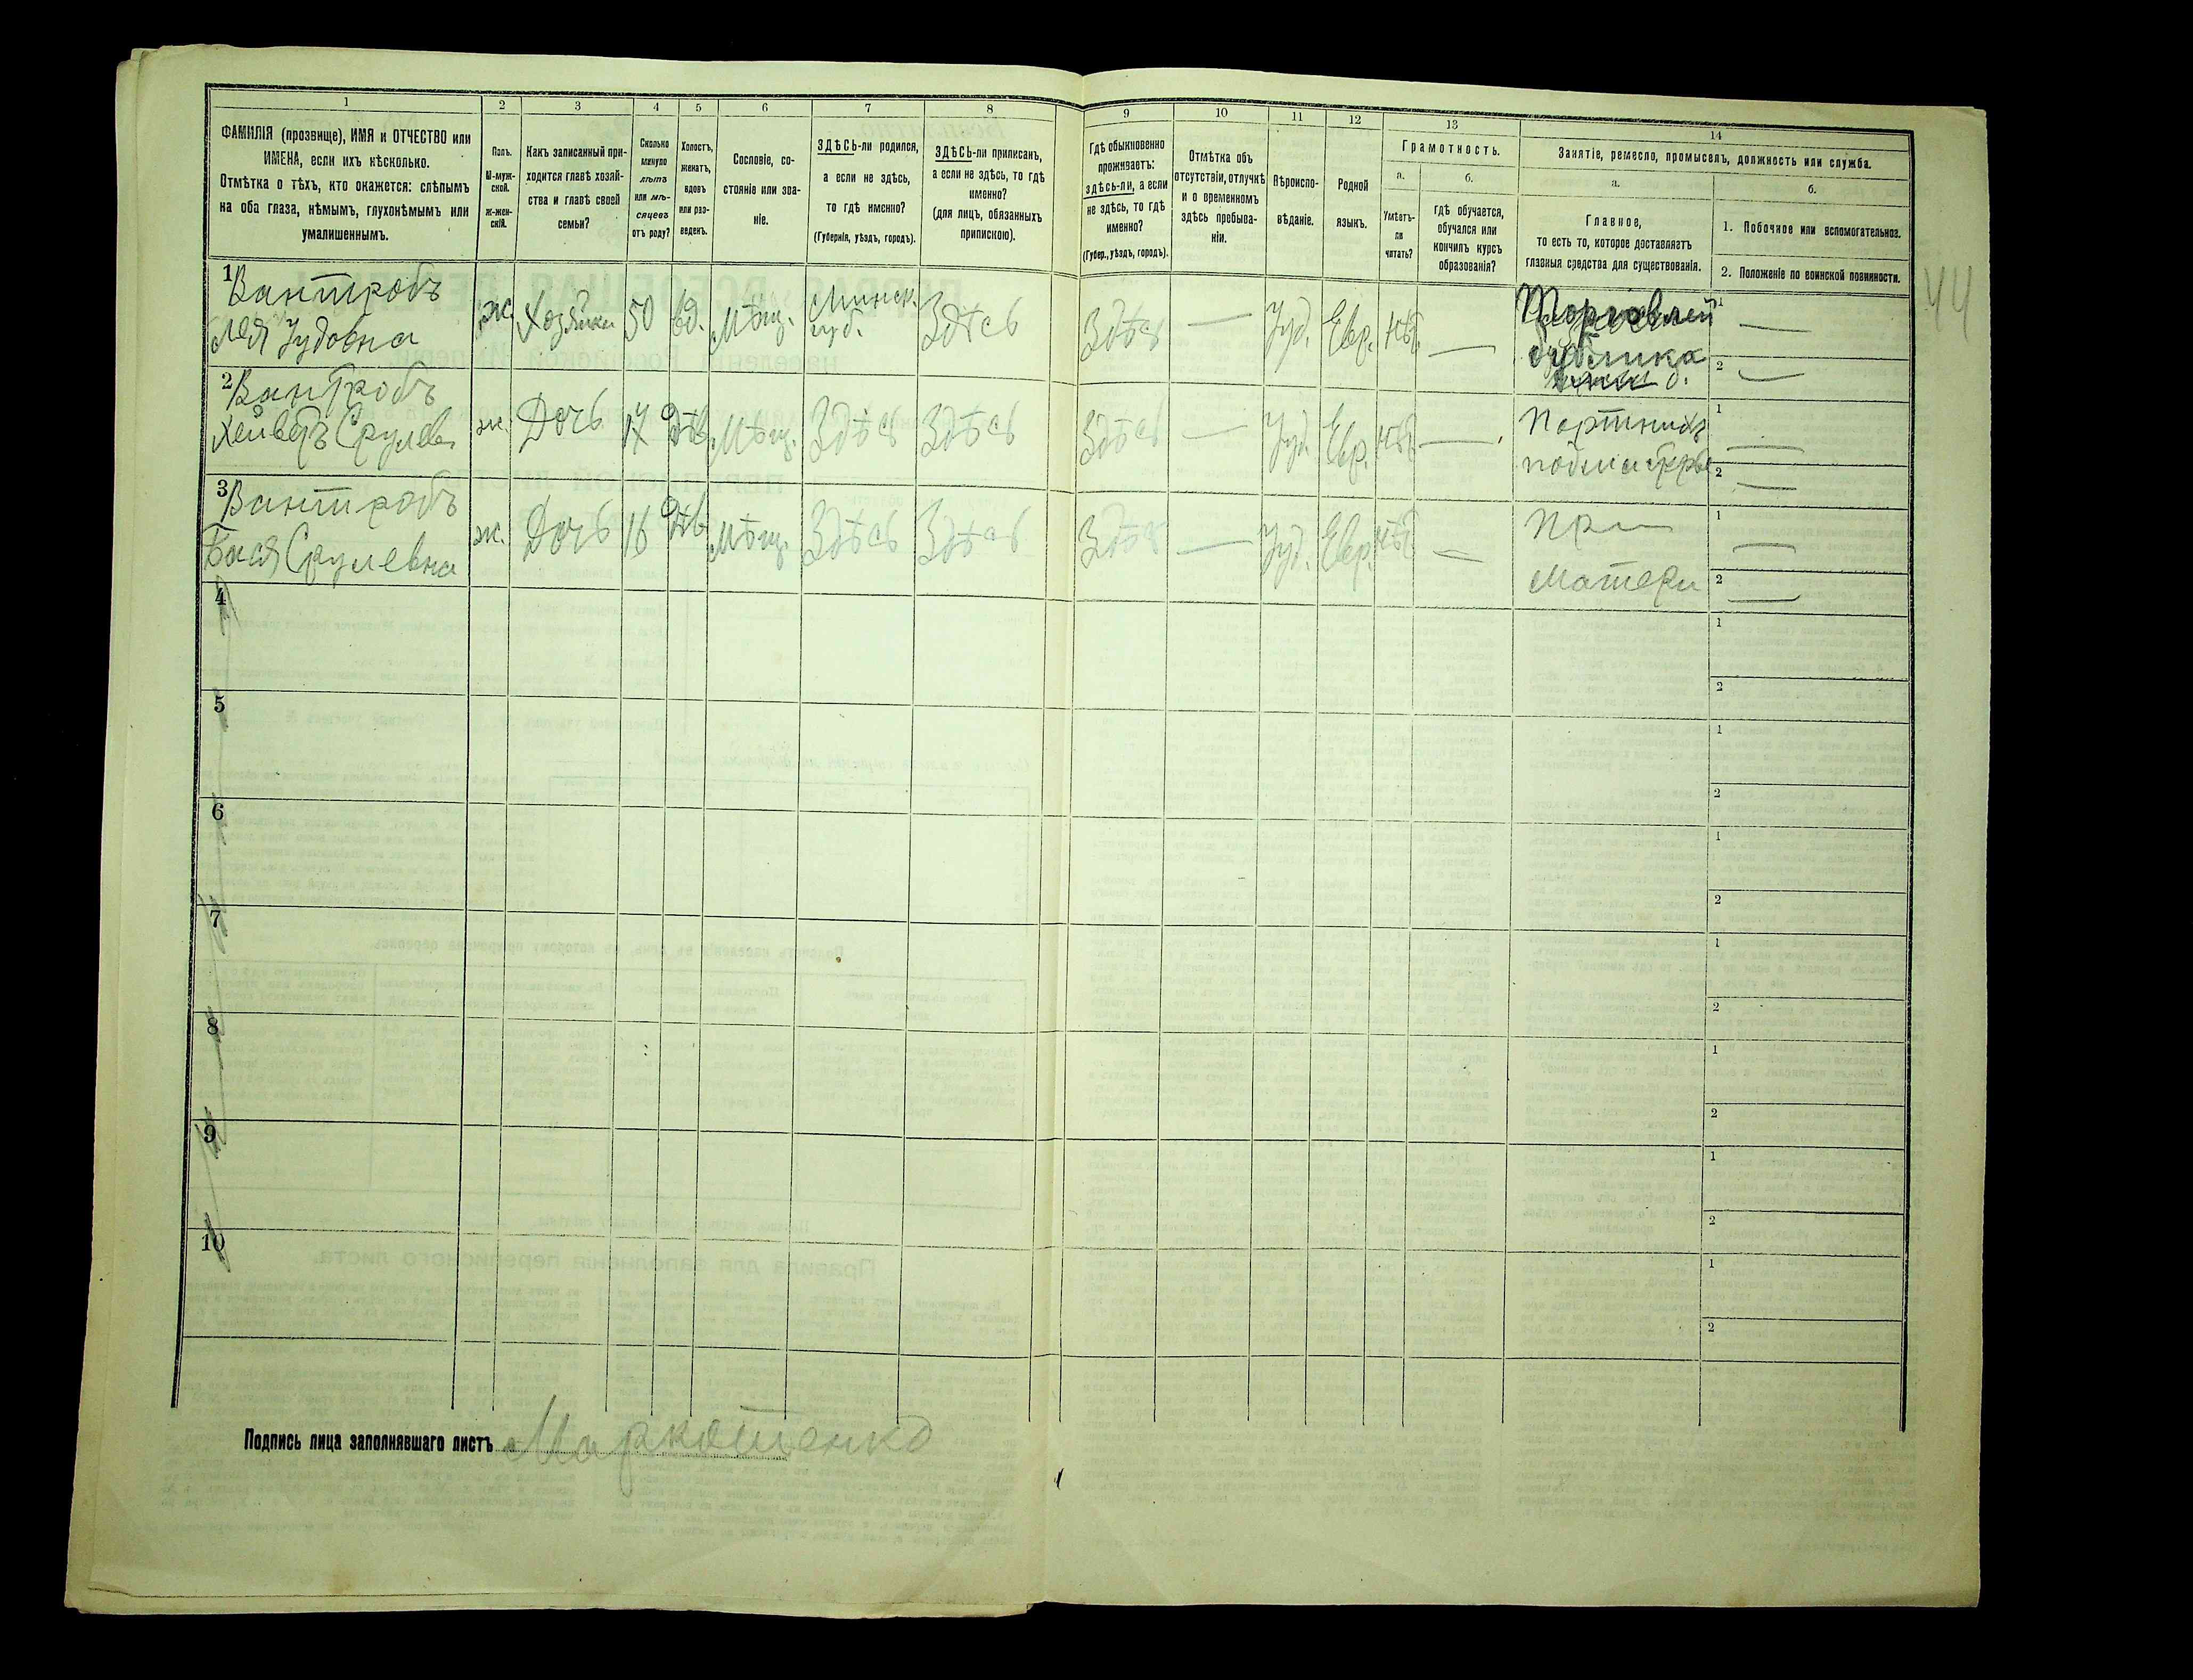 1
2
3
4
5
6
7
8
9
10
11
12
13
14
ФАМИЛІЯ (прозвище), ИМЯ и ОТЧЕСТВО или
ИМЕНА, если ихъ нѣсколько.
Отмѣтка о тѣхъ, кто окажется: слѣпымъ
на оба глаза, нѣмымъ, глухонѣмымъ или
умалишеннымъ.
Полъ.
М-муж-
ской.
Ж-жен-
скій.
Какъ записанный при-
ходится главѣ хозяй-
ства и главѣ своей
семьи?
Сколько
минуло
лѣтъ
или мѣ-
сяцевъ
отъ роду?
Холостъ,
женатъ,
вдовъ
или раз-
веденъ.
Сословіе, со-
стояніе или зва-
ніе.
ЗДѢСЬ-ли родился,
а если не здѣсь,
то гдѣ именно?
(Губернія, уѣздъ, городъ).
ЗДѢСЬ-ли приписанъ,
а если не здѣсь, то гдѣ
именно?
(для лицъ, обязанныхъ
припискою).
Гдѣ обыкновенно
проживаетъ:
здѣсь-ли, а если
не здѣсь, то гдѣ
именно?
(Губер., уѣздъ, городъ).
Отмѣтка объ
отсутствіи, отлучкѣ
и о временномъ
здѣсь пребыва-
ніи.
Вѣроиспо-
вѣданіе.
Родной
языкъ.
Грамотность.
а.
Умѣетъ-
ли
читать?
б.
гдѣ обучается,
обучался или
кончилъ курсъ
образованія?
Занятіе, ремесло, промыселъ, должность или служба.
а.
Главное,
то есть то, которое доставляетъ
главныя средства для существованія.
б.
1. Побочное или вспомогательное.
2. Положеніе по воинской повинности.
44
1 Вантробъ
Лея Іудовна
ж. Хозяйка 50 вд. Мѣщ. Минск. губ. Здѣсь Здѣсь — Іуд. Евр. нѣт —
Торговлей
бублика
1 —
2 —
2 Вантробъ
Хейведъ Срулев.
ж. Дочь 17 дѣв. Мѣщ. Здѣсь Здѣсь Здѣсь — Іуд. Евр. нѣт —
Портниха
подмастерье
1 —
2 —
3 Вантробъ
Бася Срулевна
ж. Дочь 16 дѣв. Мѣщ. Здѣсь Здѣсь Здѣсь — Іуд. Евр. нѣт —
При
матери
1 —
2 —
4
1
2
5
1
2
6
1
2
7
1
2
8
1
2
9
1
2
10
1
2
Подпись лица заполнявшаго листъ Маркотенко